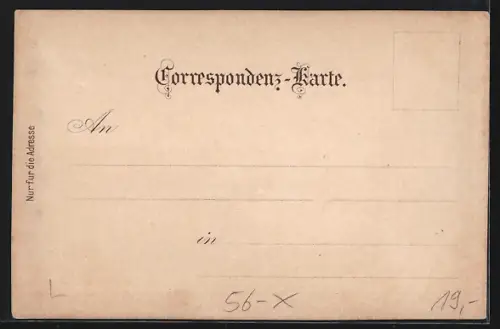 Correspondenz-Karte.
An
in
Nur für die Adresse
56-X
19,-